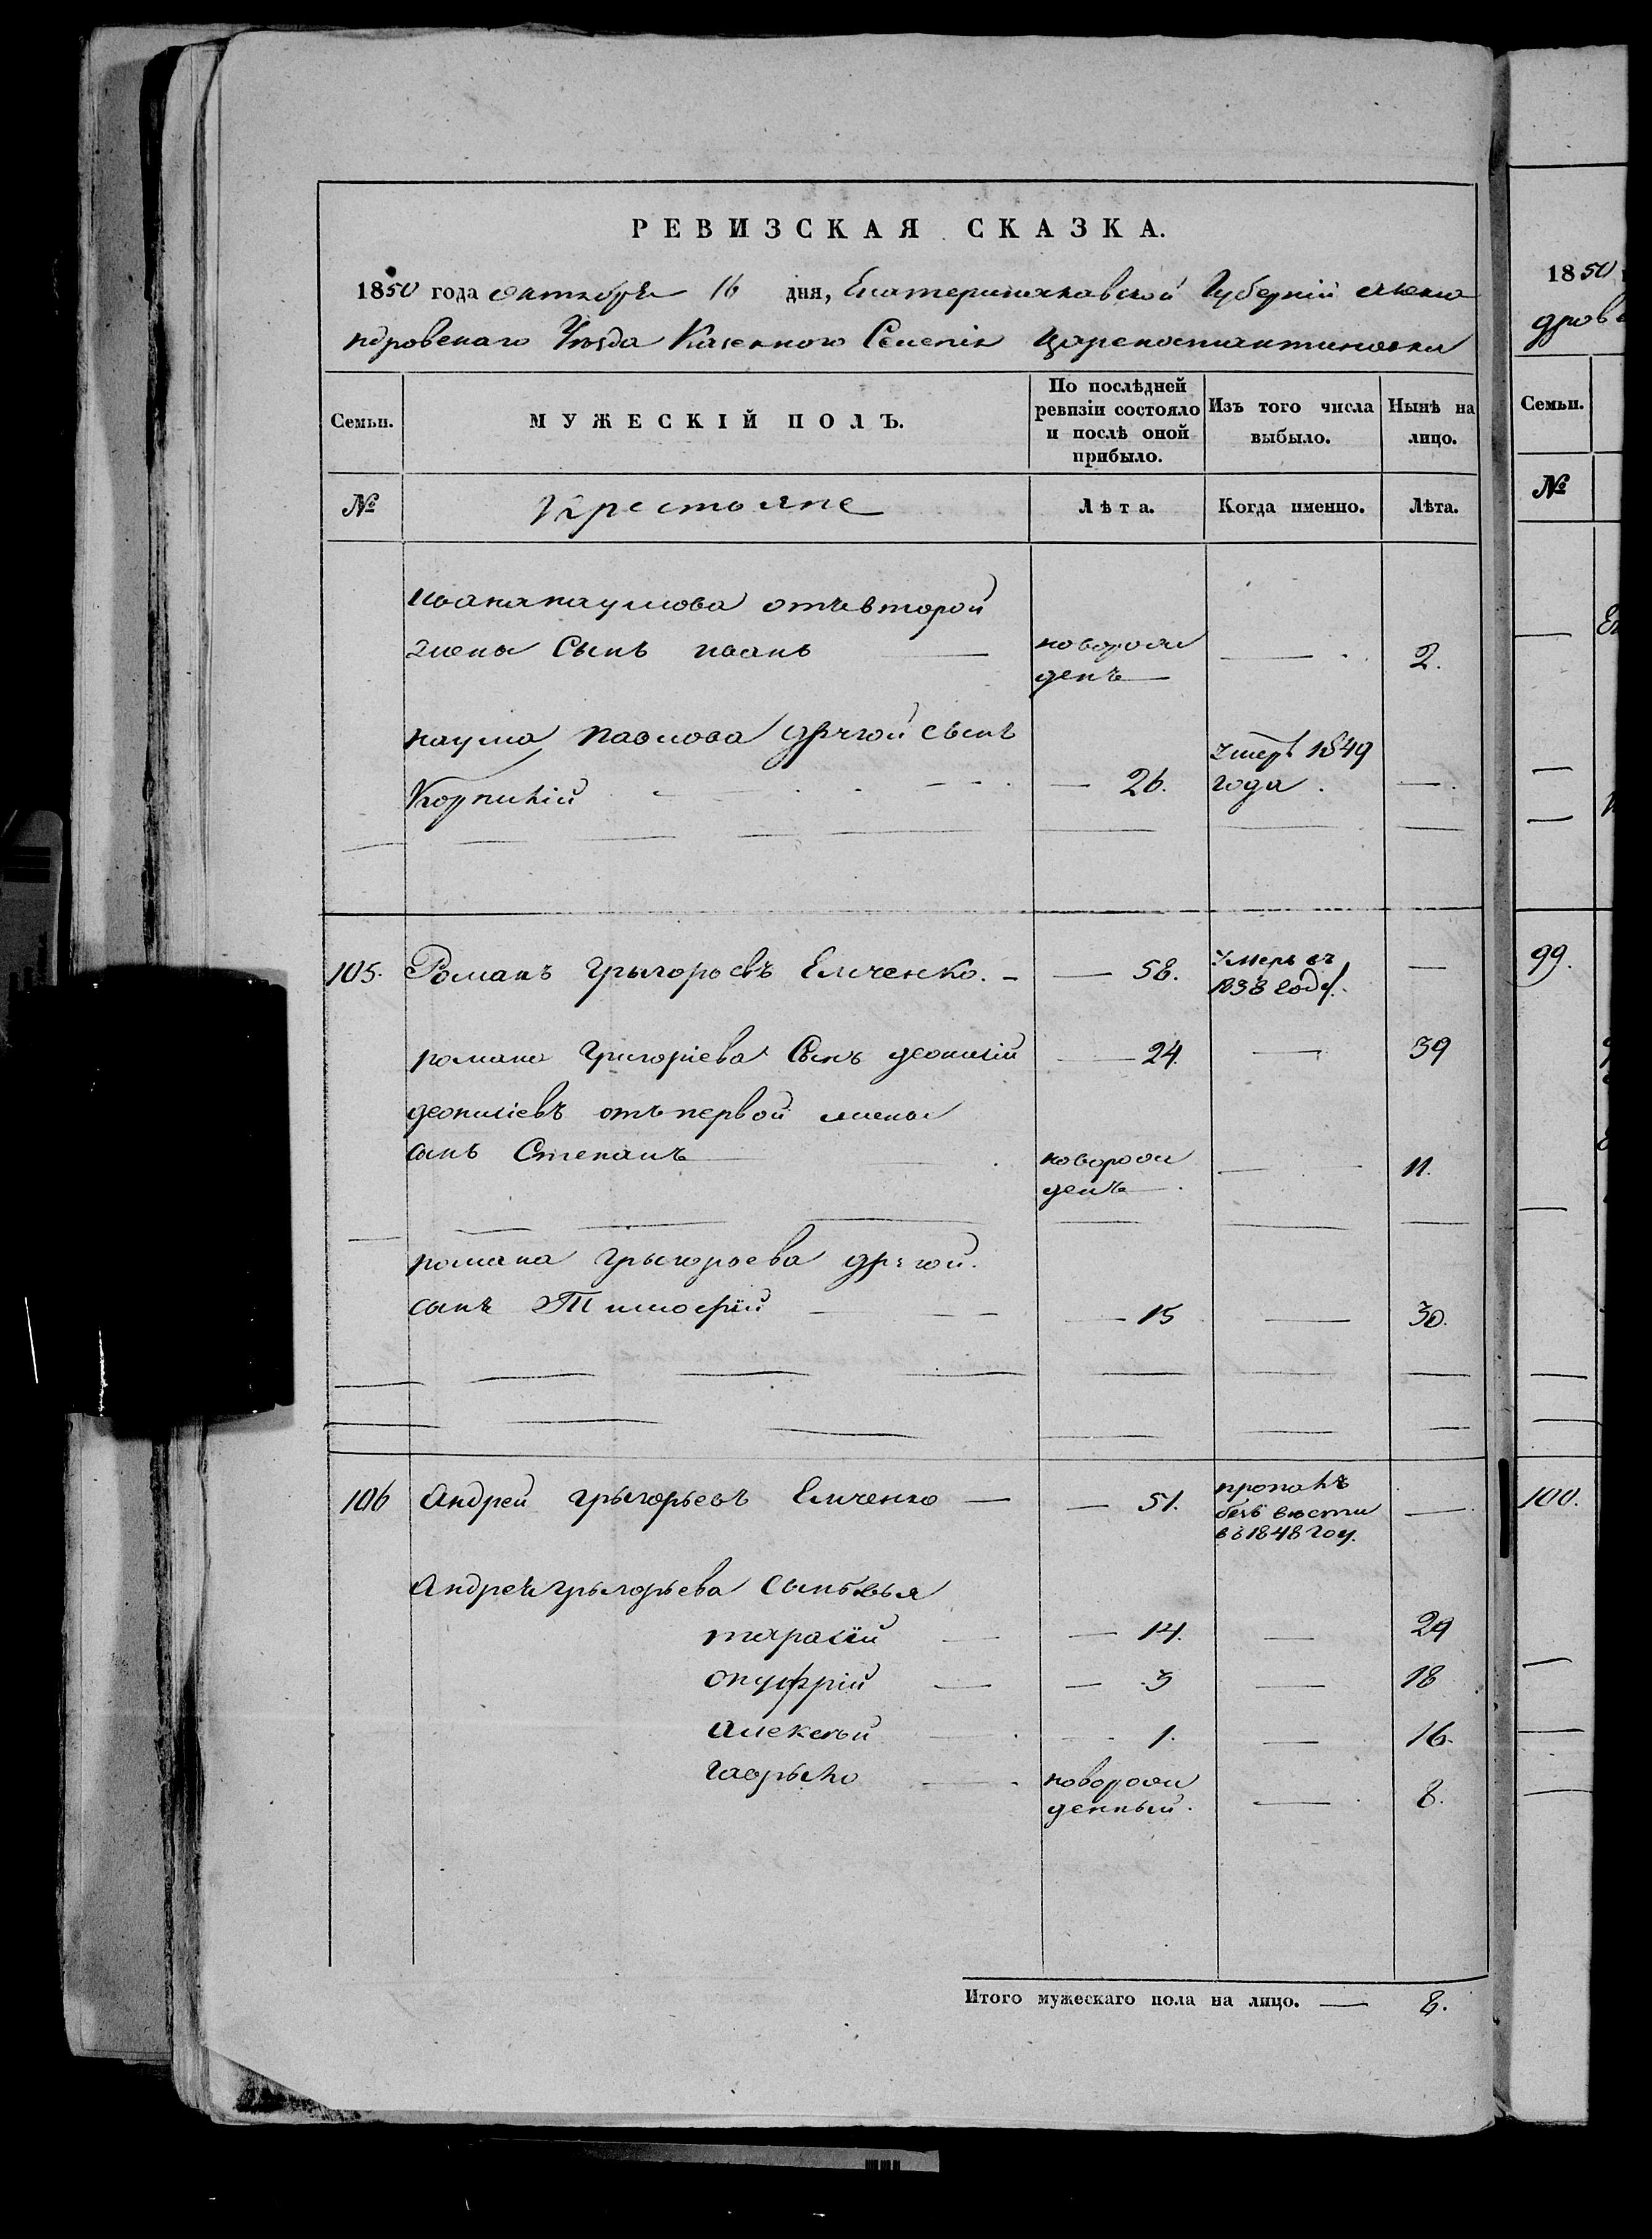 РЕВИЗСКАЯ СКАЗКА.
1850 года октября 16 дня, Екатеринославской Губерніи Алекса
ндровскаго Уѣзда Казенного Селенія Цареконстантиновки
Семьи. МУЖЕСКІЙ ПОЛЪ. По послѣдней ревизіи состояло и послѣ оной прибыло. Изъ того числа выбыло. Нынѣ на лицо.
№ Крестояне Лѣта. Когда именно. Лѣта.
Ивана наумова отъ второй
жены Сынъ иванъ — новорож — 2.
денъ
наума павлова другой сынъ умеръ 1849
Корнилій — 26. года. —
105. Романъ Грыгороевъ Емченко. — 58. Умеръ въ —
1838 году.
романа Григоріева Сынъ деонисій — 24. — 39
деонисіевъ отъ первой жены
сынъ Степанъ новорож — 11.
денъ
романа Грыгороева другой
сынъ Тимофій — 15 — 30.
106 Андрей Грыгорьевъ Емченко — 51. пропалъ —
безъ вѣсти
въ 1848 году.
Андрея грыгорьева сыновья
тарасій — 14. — 29
онуфрій — 3 — 18
Алексѣй — 1. — 16.
Гаврыло — новорож — 8.
денный.
Итого мужескаго пола на лицо. — 8.
1850
дров
Семьи.
№
99.
100.